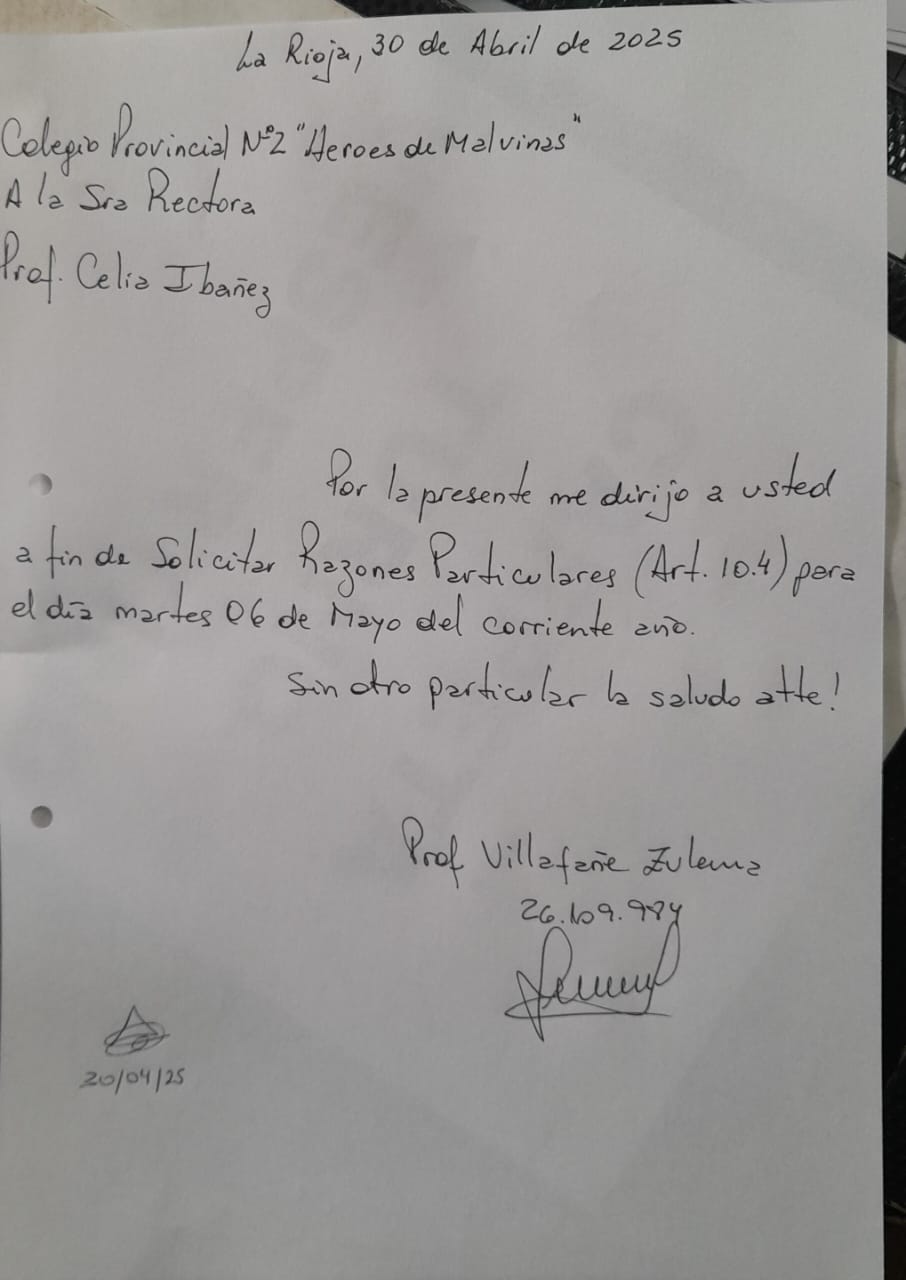 La Rioja, 30 de Abril de 2025
Colegio Provincial Nº2 "Heroes de Malvinas"
A la Sra Rectora
Prof. Celia Ibañez
Por la presente me dirijo a usted
a fin de Solicitar Razones Particulares (Art. 10.4) para
el día martes 06 de Mayo del corriente año.
Sin otro particular la saludo atte!
Prof Villafañe Zulema
26.109.984
20/04/25